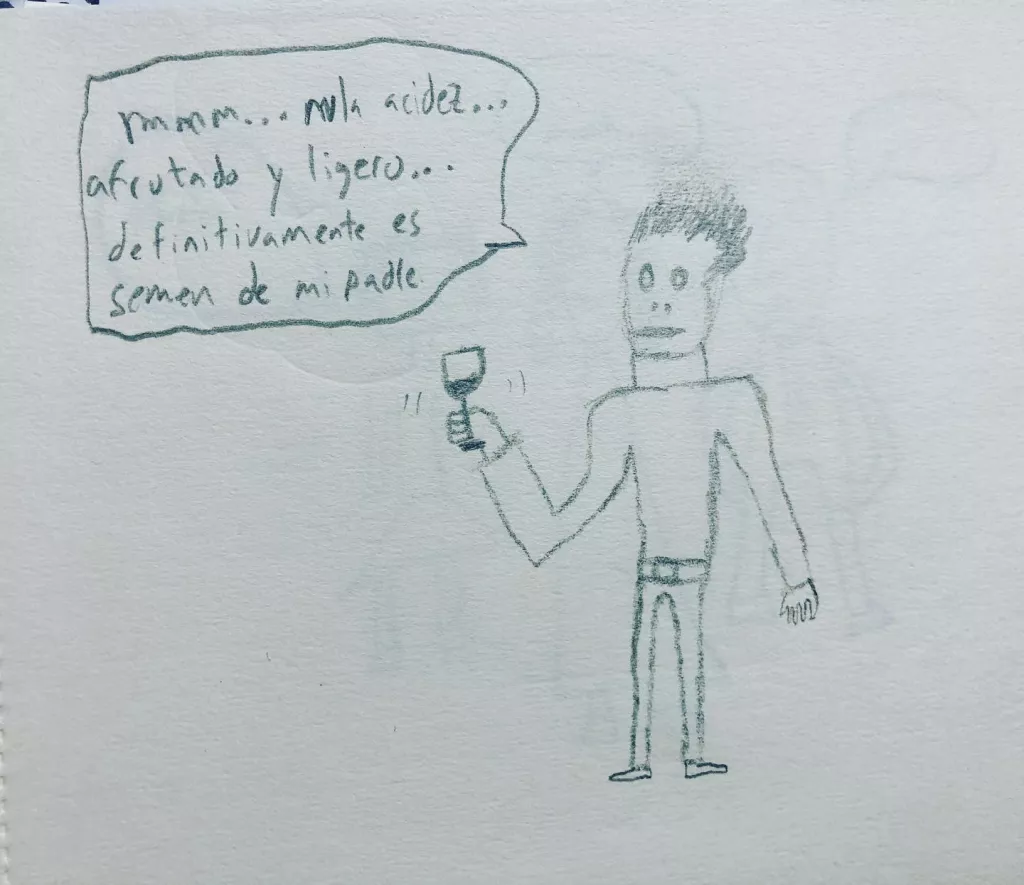 mmmm... nula acidez...
afrutado y ligero...
definitivamente es
semen de mi padle.